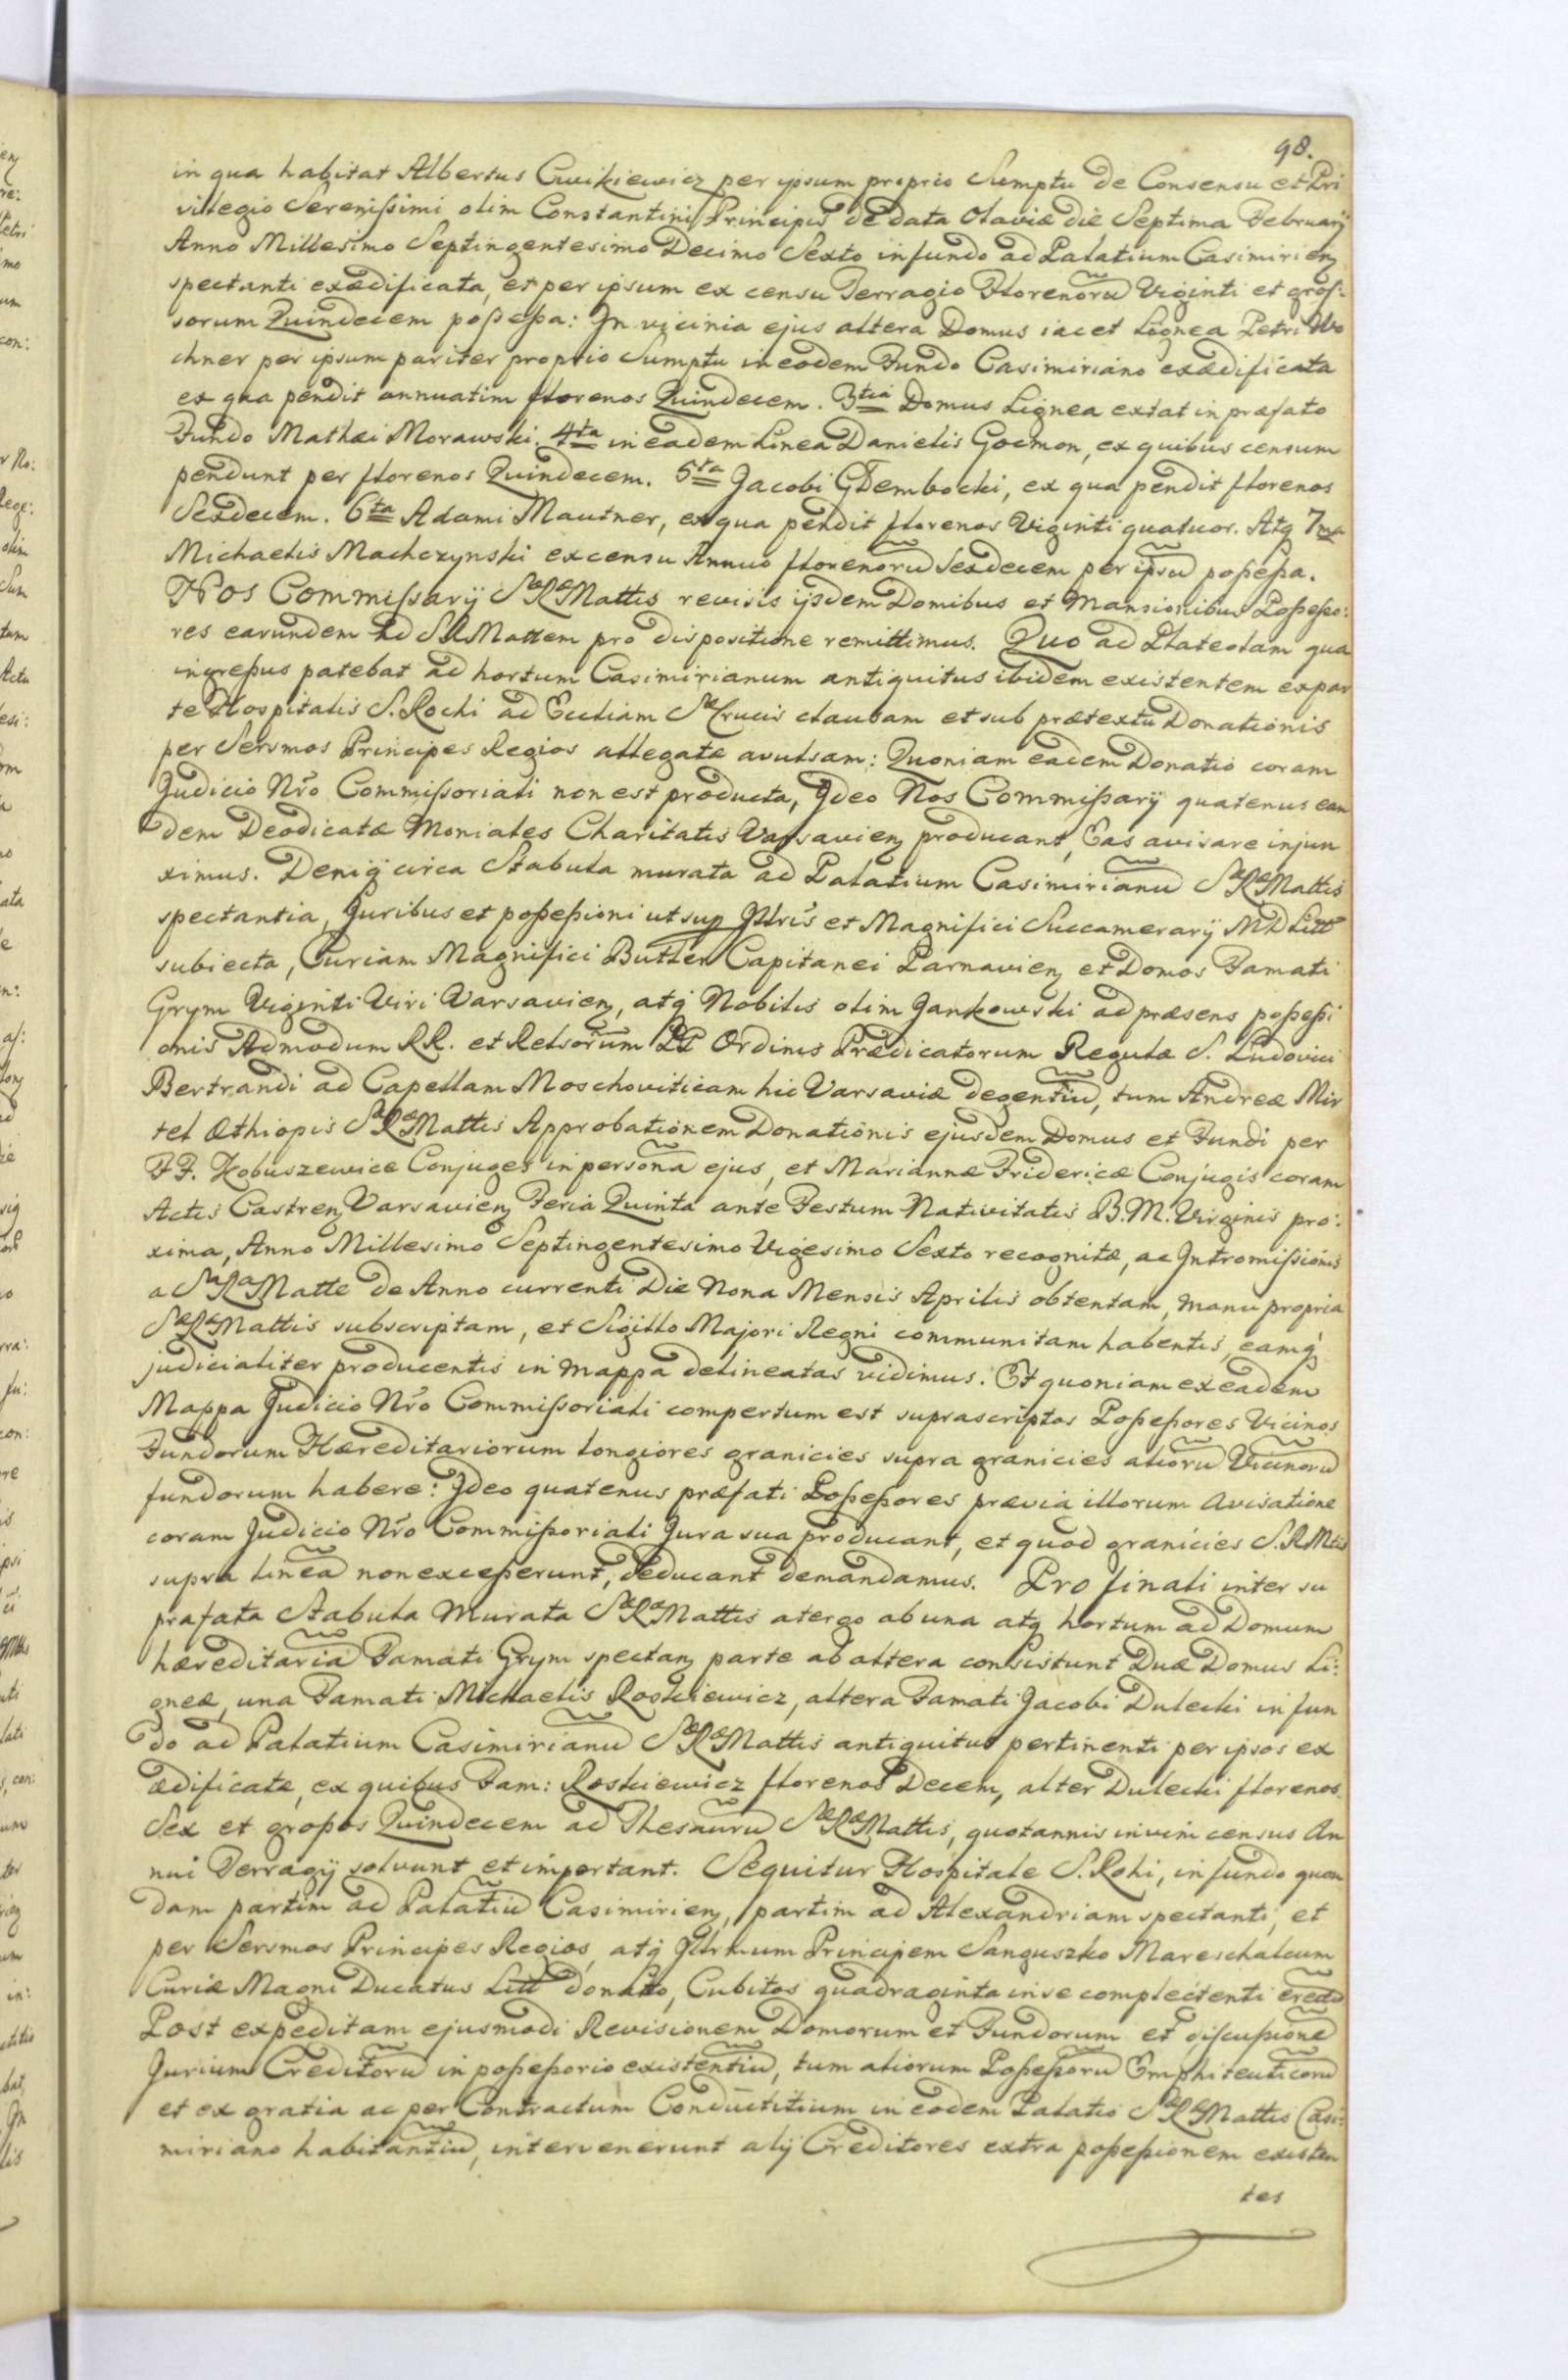 98.
in qua habitat Albertus Cwikiewicz per ipsum proprio Sumptu de Consensu et Pri
villegio Serenissimi olim Constantini Principis de data Olaviæ die Septima Februarij
Anno Millesimo Septingentesimo Decimo Sexto in fundo ad Palatium Casimirien
spectanti exædificata, et per ipsum ex censu Terragio Florenorũ Viginti et gros:
sorum Quindecem possessa: In vicinia ejus altera Domus iacet Lignea Petri Wo
chner per ipsum pariter proprio Sumptu in eodem Fundo Casimiriano exædificata
ex qua pendit annuatim florenos Quindecem. 3tia Domus Lignea extat in præfato
Fundo Mathæi Morawski. 4ta in eadem Linea Danielis Gocmon, ex quibus censum
pendunt per florenos Quindecem. 5ta Jacobi GDembocki, ex qua pendit florenos
Sexdecem. 6ta Adami Mautner, ex qua pendit florenos Viginti quatuor. Atq 7ma
Michaelis Machczynski ex censu Annuo florenorũ Sexdecem per ipsũ possessa.
Nos Commissarij SæRæMattis revisis ijsdem Domibus et Mansionibus Possesso:
res earundem ad SRMattem pro dispositione remittimus. Quo ad Plateolam qua
ingressus patebat ad hortum Casimirianum antiquitus ibidem existentem ex par
te Hospitalis S. Rochi ad Eccliam Sæ Crucis clausam et sub prætextu Donationis
per Sersmos Principes Regios allegatæ avulsam: Quoniam eadem Donatio coram
Judicio Nrõ Commissoriali non est producta, Ideo Nos Commissarij quatenus ean
dem Deodicatæ Moniales Charitatis Varsavien producant, Eas avisare injun
ximus. Deniq circa Stabula murata ad Palatium Casimirianũ SæRæMattis
spectantia, Juribus et possessioni ut sup Illris et Magnifici Succamerarij MD Litt
subiecta, Curiam Magnifici Butler Capitanei Parnavien et Domos Famati
Grym Viginti Viri Varsavien, atq Nobilis olim Jankowski ad præsens possessi
onis Admodum RR. et Relsorum PP Ordinis Prædicatorum Regulæ S. Ludovici
Bertrandi ad Capellam Moschoviticam hic Varsaviæ degentiũ, tum Andreæ Mir
tel Æthiopis SæRæMattis Approbationem Donationis ejusdem Domus et Fundi per
FF. Kobuszewice Conjuges in personã ejus, et Mariannæ Fridericæ Conjugis coram
Actis Castren Varsavien Feria Quinta ante Festum Nativitatis B.M. Virginis pro:
xima, Anno Millesimo Septingentesimo Vigesimo Sexto recognitæ, ac Intromissionis
a SaRaMatte de Anno currenti Die Nona Mensis Aprilis obtentam, manu propria
SæRæMattis subscriptam, et Sigillo Majori Regni communitam habentis, eamq
judicialiter producentis in Mappa delineatas vidimus. Et quoniam ex eadem
Mappa Judicio Nrõ Commissoriali compertum est suprascriptos Possessores Vicinos
Fundorum Hæreditariorum longiores granicies supra granicies aliorũ Vicinorũ
fundorum habere: Ideo quatenus præfati Possessores prævia illorum avisatione
coram Judicio Nrõ Commissoriali Jura sua producant, et quod granicies S.R.Mtis
supra lineã non excesserunt, deducant demandamus. Pro finali inter su
præfata Stabula Murata SæRæMattis a tergo ab una atq hortum ad Domum
hæreditariã Famati Grym spectan parte ab altera consistunt Duæ Domus Li:
gneæ, una Famati Michaelis Roskiewicz, altera Famati Jacobi Dulecki in fun
do ad Palatium Casimirianũ SæRæMattis antiquitus pertinenti per ipsos ex
ædificatæ, ex quibus Fam: Roskiewicz florenos Decem, alter Dulecki florenos
Sex et grossos Quindecem ad Thesaurũ SæRæMattis, quotannis in vim census An
nui Terragij solvunt et important. Sequitur Hospitale S. Rohi, in fundo quon
dam partim ad Palatiũ Casimirien, partim ad Alexandriam spectanti, et
per Sersmos Principes Regios, atq Illrmum Principem Sanguszko Mareschalcum
Curiæ Magni Ducatus Litt donato, Cubitos quadraginta in se complectenti erectũ
Post expeditam ejusmodi Revisionem Domorum et Fundorum et discussionẽ
Jurium Creditorũ in possessorio existentiũ, tum aliorum Possessorũ Emphiteuticorũ
et ex gratia ac per Contractum Conductitium in eodem Palatio SæRæMattis Casi:
miriano habitantiũ, intervenerunt alij Creditores extra possessionem existen
tes